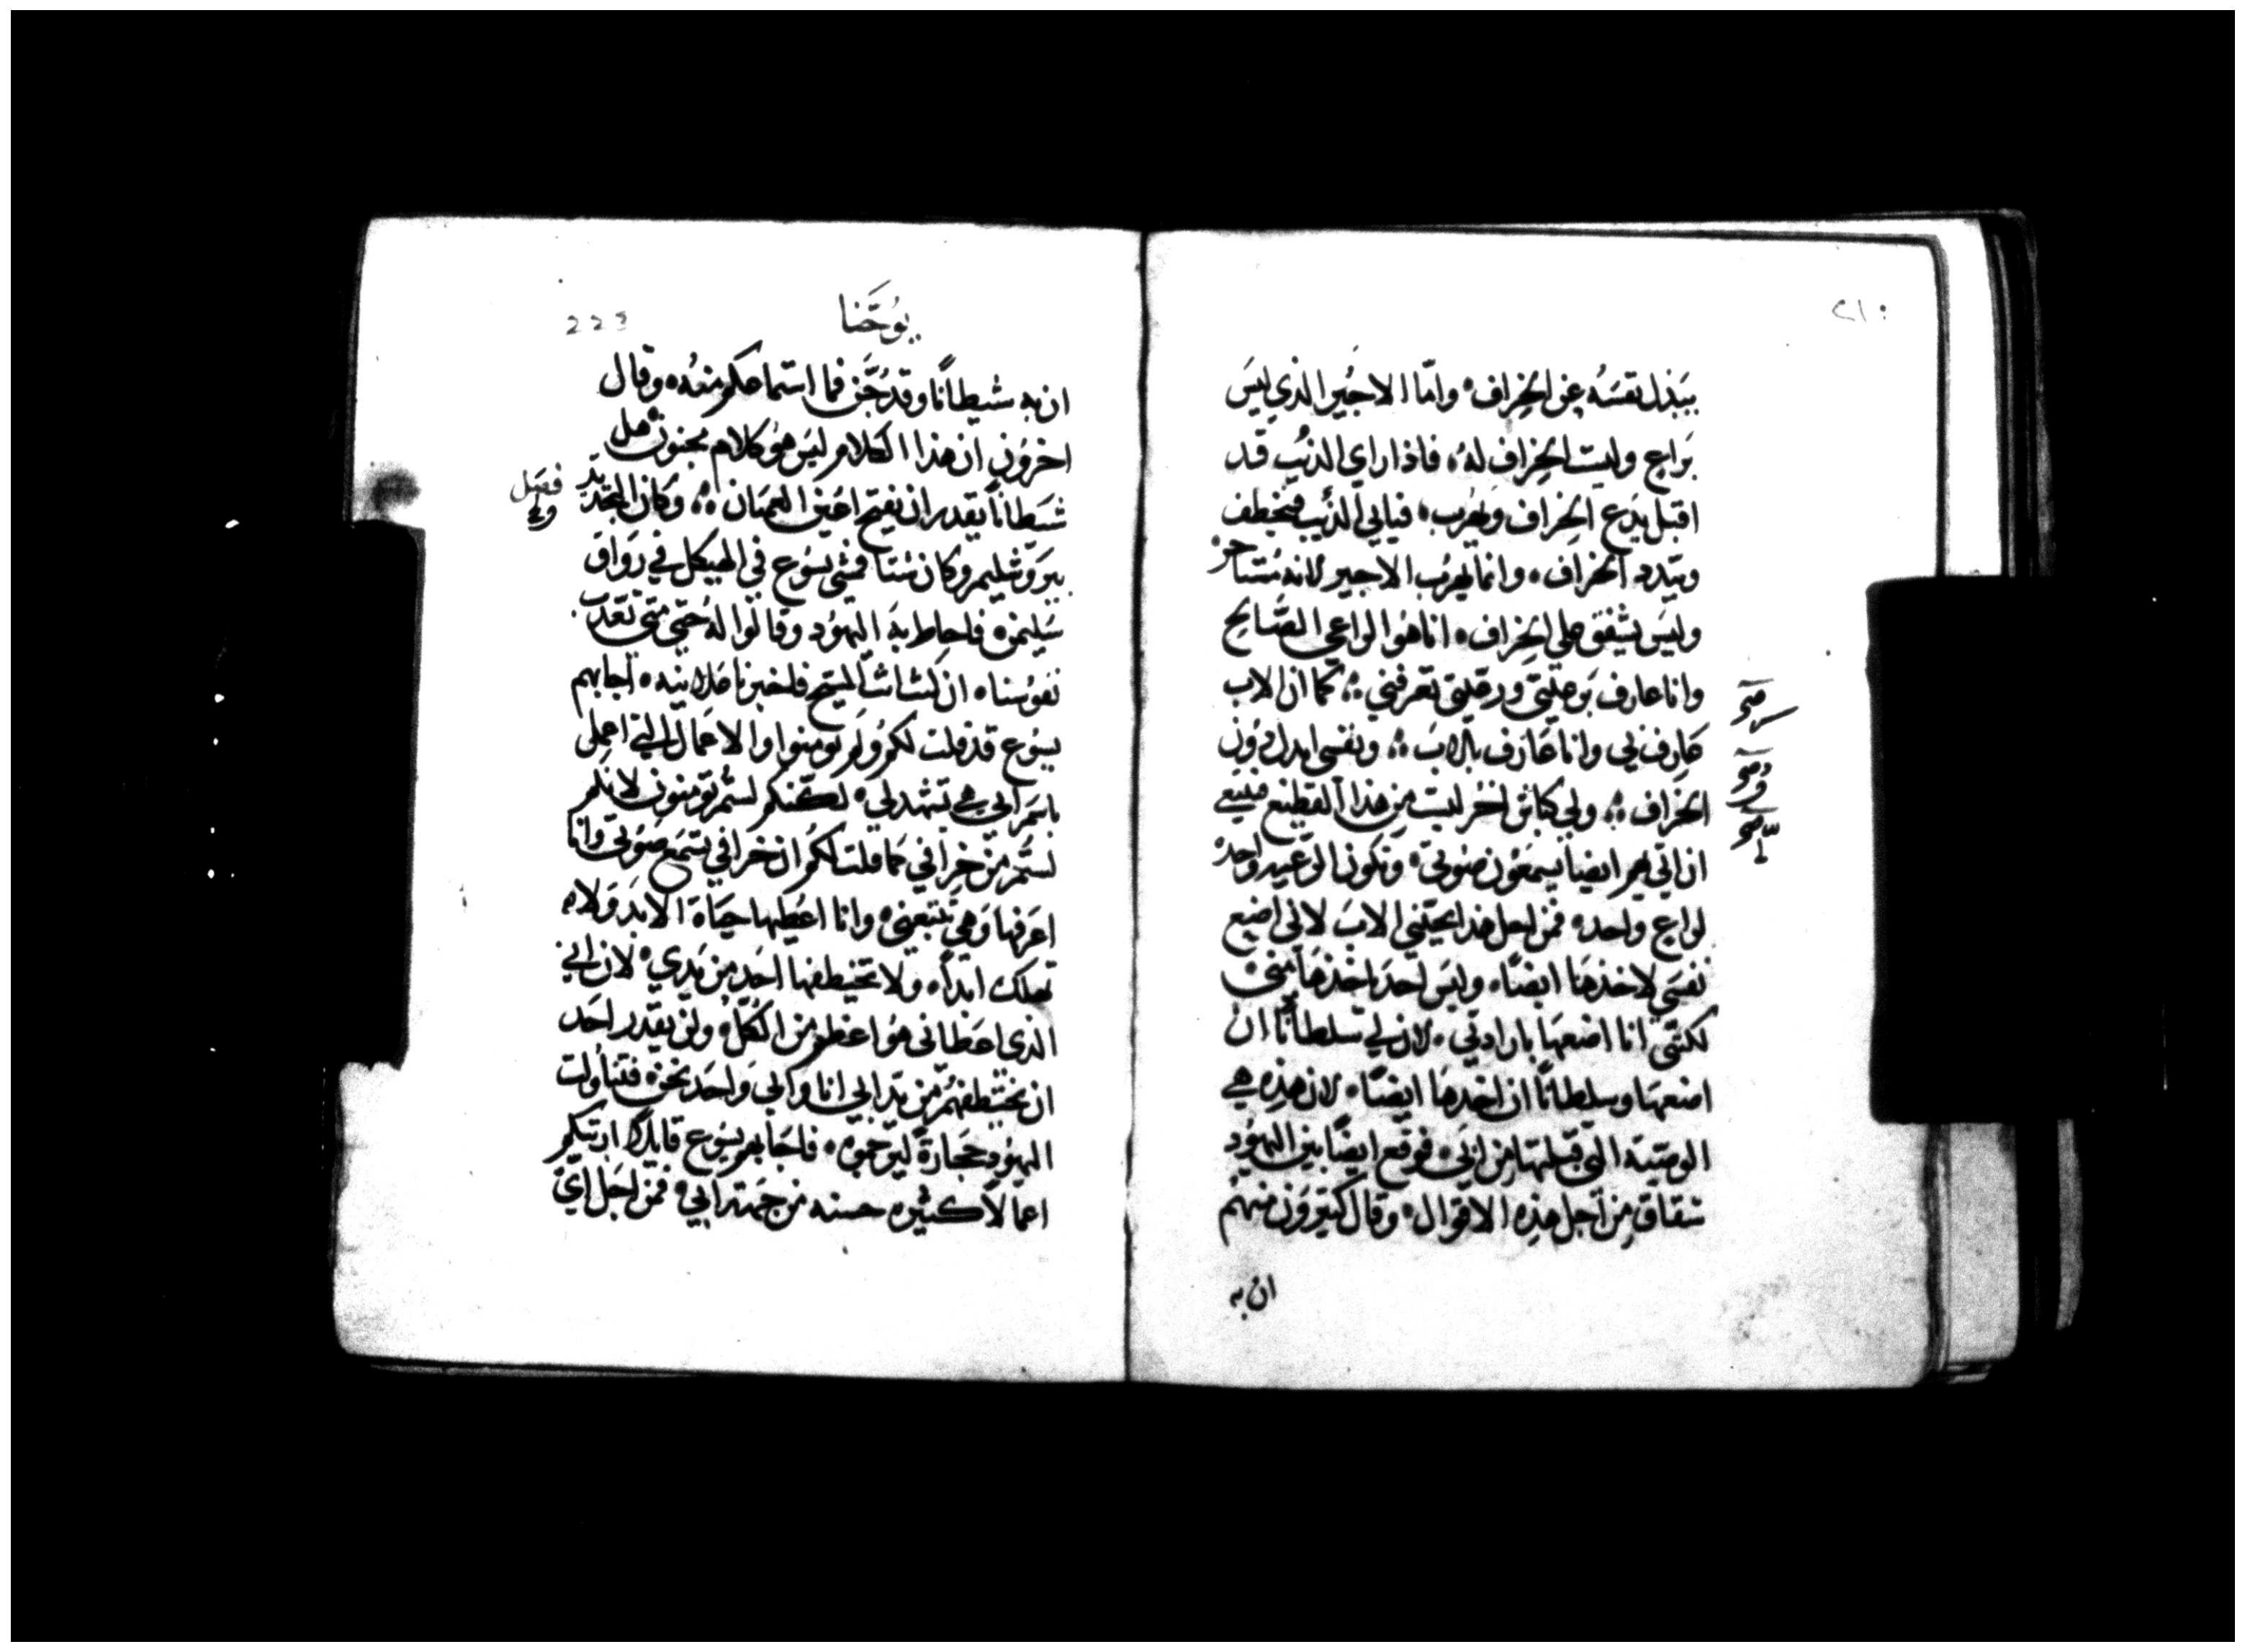 ٢١٠
يبذل نفسه عن الخراف، واما الاجير الذي ليس
براع وليست الخراف له، فاذا راي الذيب قد
اقبل يدع الخراف ويهرب، فياتي الذيب فيخطف
ويبدد الخراف، وانما يهرب الاجير لانه مستاجر
وليس يشفق علي الخراف، انا هو الراعي الصالح
وانا عارف برعيتي ورعيتي تعرفني ؞ كما ان الاب
عارف بي وانا عارف بالاب ؞ ونفسي ابدل دون
الخراف ؞ ولي كباش اخر ليست من هذا القطيع فينبغي
ان اتي بهم ايضا يسمعون صوتي، وتكون الرعيه واحده
لراع واحد، فمن اجل هذا يحبني الاب لاني اضع
نفسي لاخذها ايضا، وليس احد ياخذها مني،
لكنني انا اضعها بارادتي، لان لي سلطانا ان
اضعها وسلطانا ان اخدها ايضا، لان هذه هي
الوصيه التي قبلتها من ابي، فوقع ايضا بين اليهود
شقاق من اجل هذه الاقوال، وقال كتيرون منهم
ان به
يوحنا
223
ان به شيطانا وقد جن فما استماعكم منه، وقال
اخرون ان هذا الكلام ليس هو كلام مجنون هل
شيطانا يقدر ان يفتح اعين العميان ؞ وكان التجديد
فصل
بيروشليم وكان شتا فمشي يسوع في الهيكل في رواق
سليمن، فاحاط به اليهود وقالوا له حتي متي تعدب
نفوسنا، ان كنت انت المسيح فاخبرنا علانيه، اجابهم
يسوع قد قلت لكم ولم تومنوا والاعمال التي اعمل
باسم ابي هي تشهد لي، لكنكم لستم تومنون لانكم
لستم من خرافي كما قلت لكم ان خرافي تسمع صوتي وانا
اعرفها وهي تتبعني، وانا اعطيها حياة الابد ولا
تهلك ابدا، ولا تخطفها احد من يدي، لان ابي
الذي اعطاني هو اعظم من الكل، ولن يقدر احد
ان يختطفهم من يد ابي انا وابي واحد نحن، فتناولت
اليهود حجارة ليرجموه، فاجابهم يسوع قايلا اريتكم
اعمالا كثيره حسنه من جهة ابي، فمن اجل اي